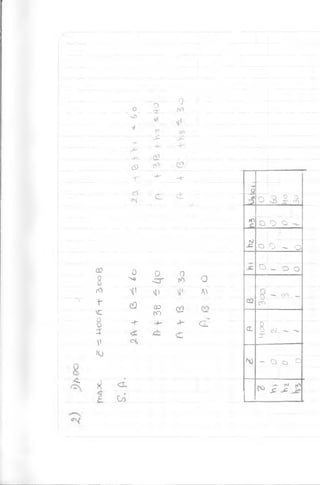 2) DADO
max Z = 400A + 300B
S.A.
2A + B ≤ 60
A + 3B ≤ 40
A + B ≤ 30
A, B ≥ 0
2A + B + h1 = 60
A + 3B + h2 = 40
A + B + h3 = 30
Z A B h1 h2 h3
Z 1 400 300 0 0 0 0
h1 0 2 1 1 0 0 60
h2 0 1 3 0 1 0 40
h3 0 1 1 0 0 1 30